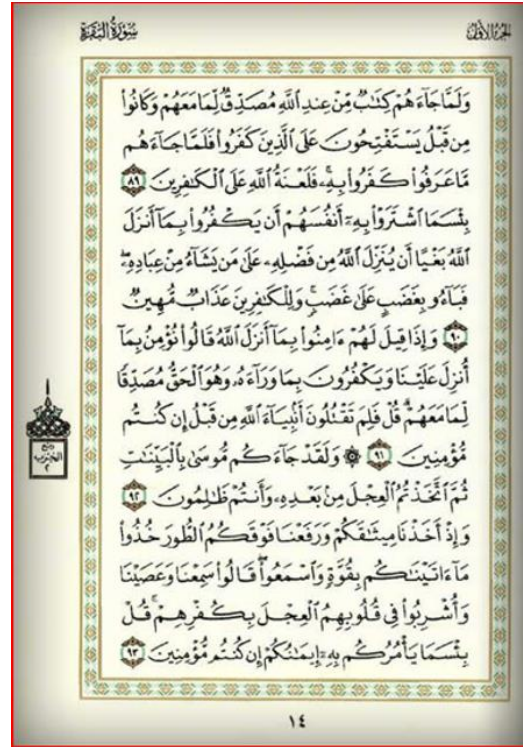 سُورَةُ البَقَرَةِ
الجُزْءُ الأَوَّلُ
وَلَمَّا جَآءَهُمْ كِتَٰبٌ مِّنْ عِندِ ٱللَّهِ مُصَدِّقٌ لِّمَا مَعَهُمْ وَكَانُوا۟
مِن قَبْلُ يَسْتَفْتِحُونَ عَلَى ٱلَّذِينَ كَفَرُوا۟ فَلَمَّا جَآءَهُم
مَّا عَرَفُوا۟ كَفَرُوا۟ بِهِۦ ۚ فَلَعْنَةُ ٱللَّهِ عَلَى ٱلْكَٰفِرِينَ ٨٩
بِئْسَمَا ٱشْتَرَوْا۟ بِهِۦٓ أَنفُسَهُمْ أَن يَكْفُرُوا۟ بِمَآ أَنزَلَ
ٱللَّهُ بَغْيًا أَن يُنَزِّلَ ٱللَّهُ مِن فَضْلِهِۦ عَلَىٰ مَن يَشَآءُ مِنْ عِبَادِهِۦ ۖ
فَبَآءُو بِغَضَبٍ عَلَىٰ غَضَبٍ ۚ وَلِلْكَٰفِرِينَ عَذَابٌ مُّهِينٌ
٩٠ وَإِذَا قِيلَ لَهُمْ ءَامِنُوا۟ بِمَآ أَنزَلَ ٱللَّهُ قَالُوا۟ نُؤْمِنُ بِمَآ
أُنزِلَ عَلَيْنَا وَيَكْفُرُونَ بِمَا وَرَآءَهُۥ وَهُوَ ٱلْحَقُّ مُصَدِّقًا
لِّمَا مَعَهُمْ ۗ قُلْ فَلِمَ تَقْتُلُونَ أَنۢبِيَآءَ ٱللَّهِ مِن قَبْلُ إِن كُنتُم
مُّؤْمِنِينَ ٩١ ۞ وَلَقَدْ جَآءَكُم مُّوسَىٰ بِٱلْبَيِّنَٰتِ
ثُمَّ ٱتَّخَذْتُمُ ٱلْعِجْلَ مِنۢ بَعْدِهِۦ وَأَنتُمْ ظَٰلِمُونَ ٩٢
وَإِذْ أَخَذْنَا مِيثَٰقَكُمْ وَرَفَعْنَا فَوْقَكُمُ ٱلطُّورَ خُذُوا۟
مَآ ءَاتَيْنَٰكُم بِقُوَّةٍ وَٱسْمَعُوا۟ ۖ قَالُوا۟ سَمِعْنَا وَعَصَيْنَا
وَأُشْرِبُوا۟ فِى قُلُوبِهِمُ ٱلْعِجْلَ بِكُفْرِهِمْ ۚ قُلْ
بِئْسَمَا يَأْمُرُكُم بِهِۦٓ إِيمَٰنُكُمْ إِن كُنتُم مُّؤْمِنِينَ ٩٣
ربع
الحزب
٢
١٤